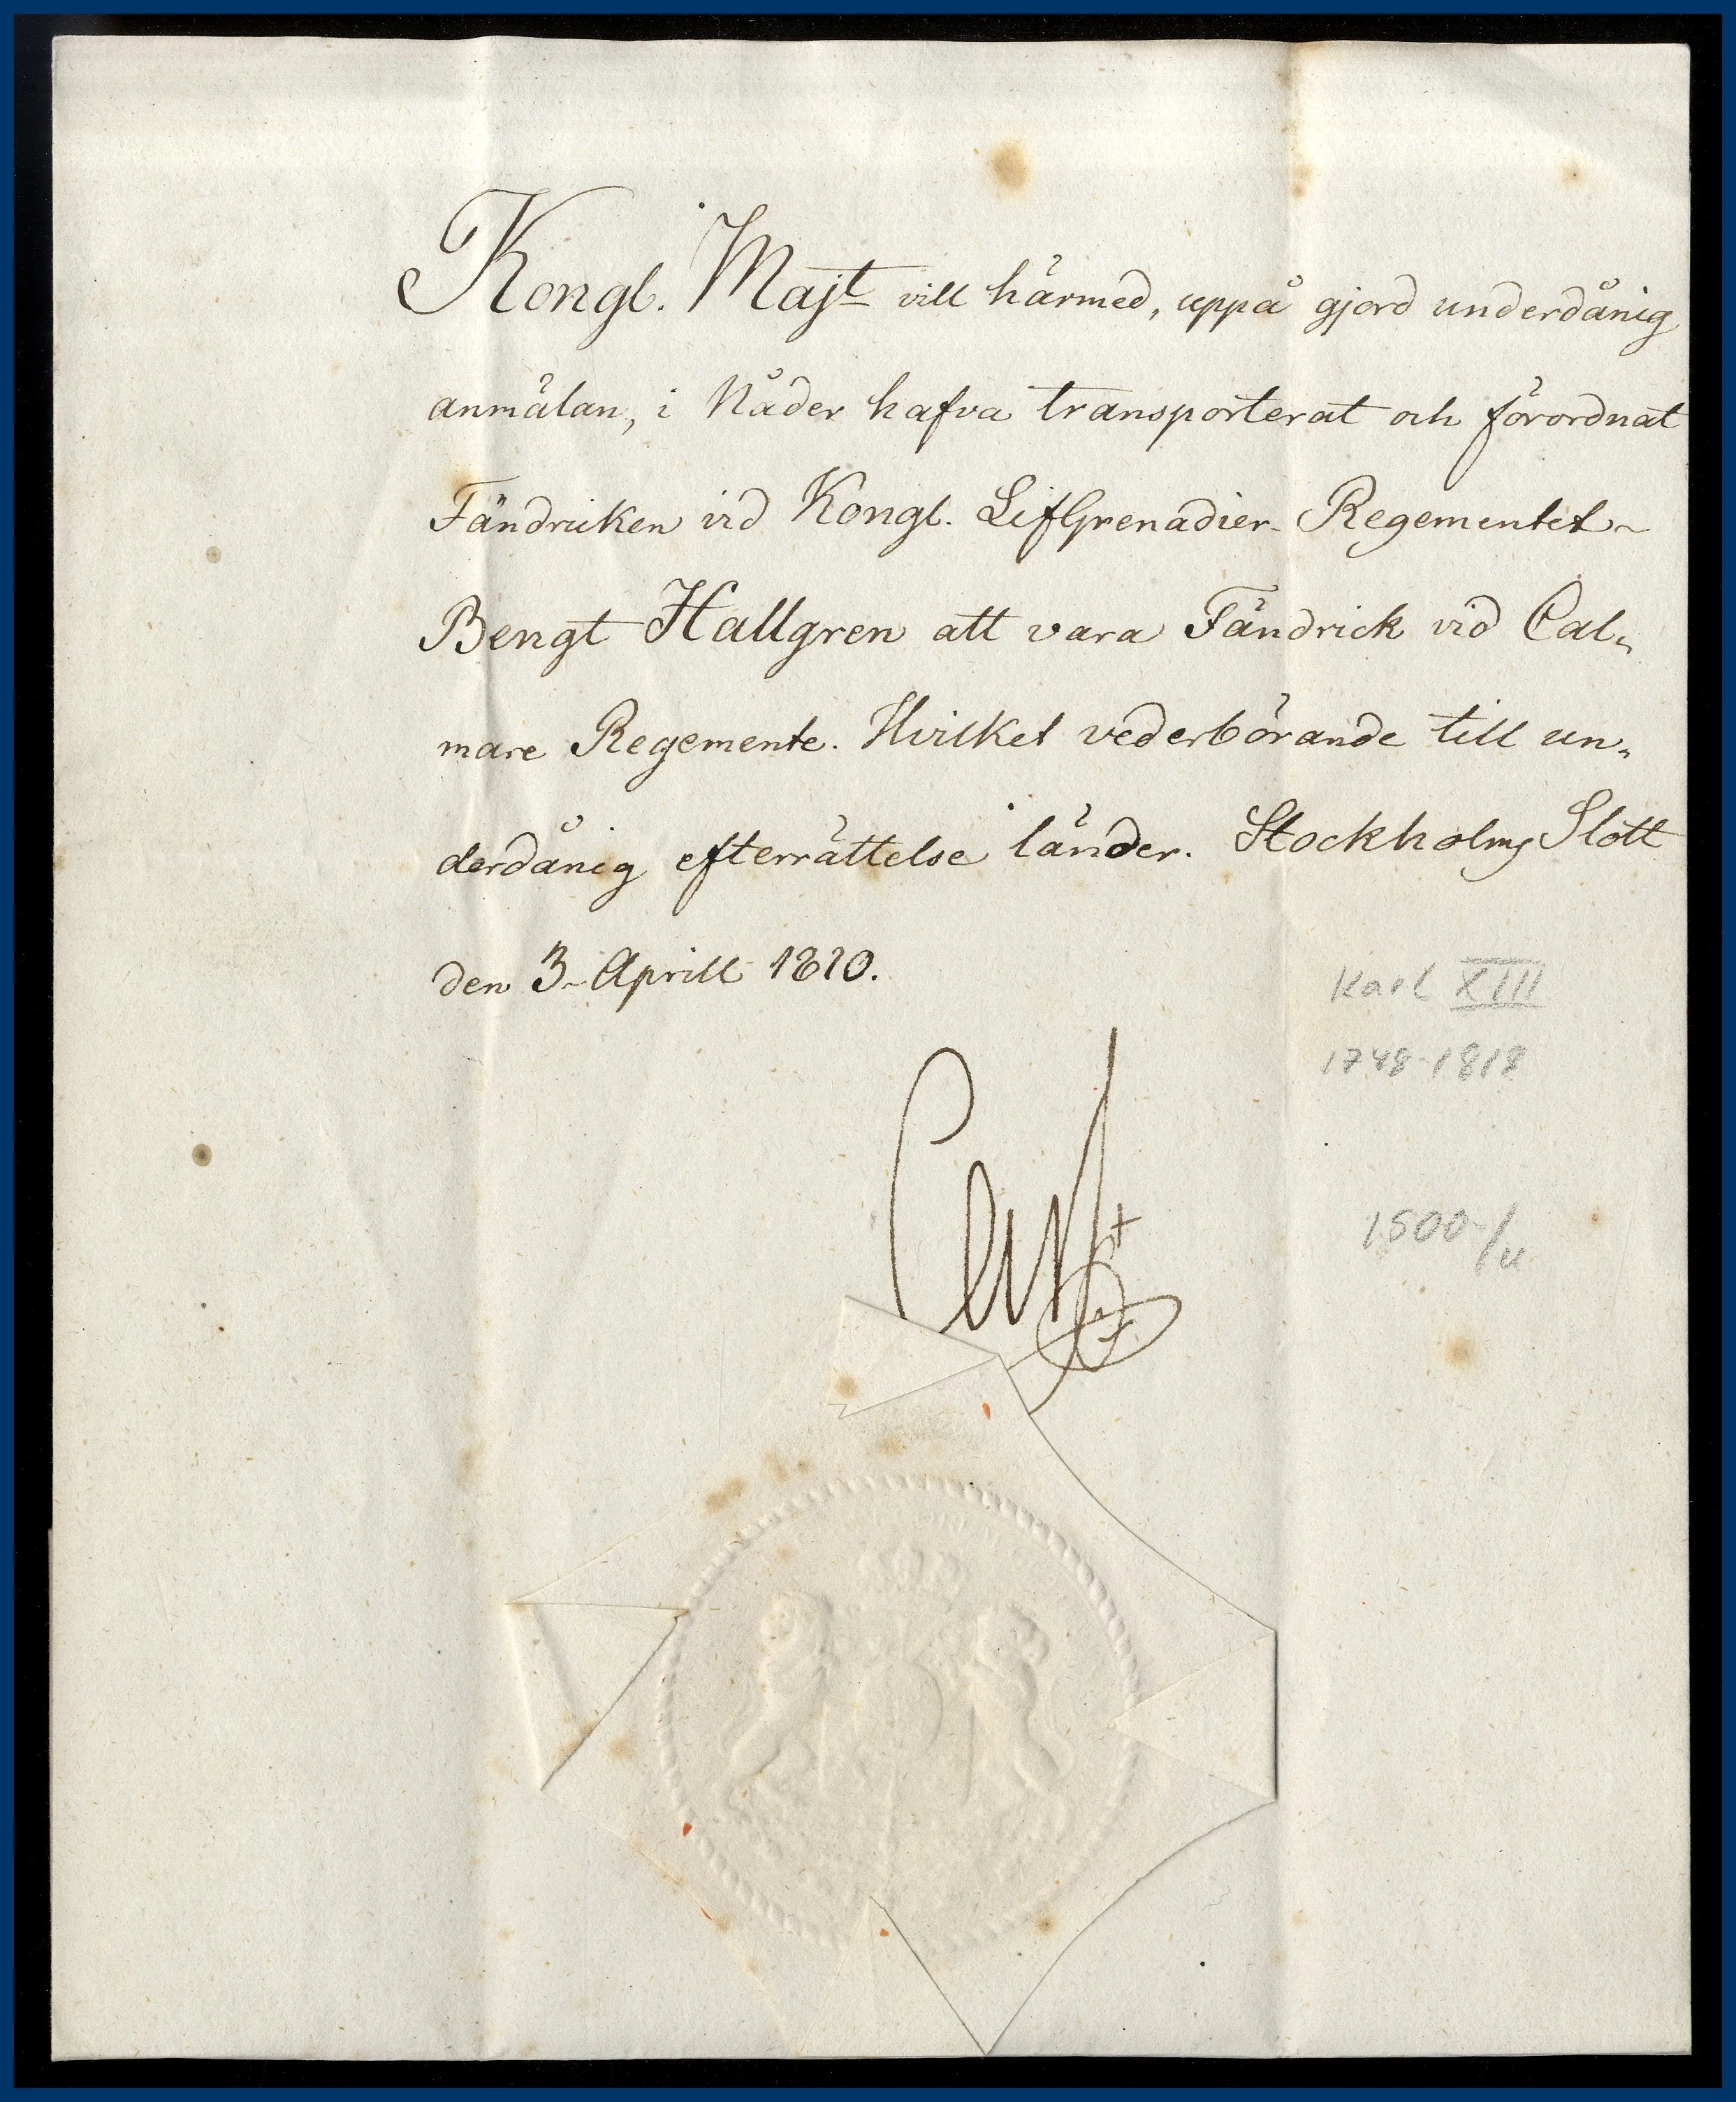 Kongl. Majt vill härmed, uppå gjord underdånig
anmälan, i Nåder hafva transporterat och förordnat
Fändricken vid Kongl. LifGrenadier-Regementet
Bengt Hallgren att vara Fändrick vid Cal„
mare Regemente. Hvilket vederbörande till un„
derdånig efterrättelse länder. Stockholms Slott
den 3 Aprill 1810.
Karl XIII
1748-1818
Carl
1500-/